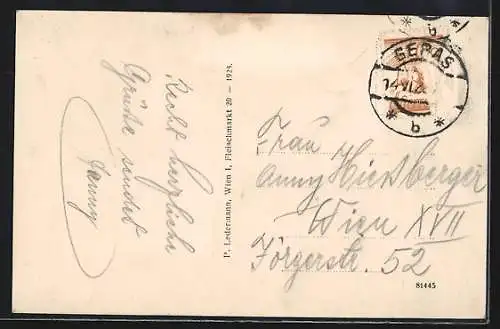 Recht herzliche
Grüße sendet
Fanny
P. Ledermann, Wien I, Fleischmarkt 20 — 1924.
GERAS
14 VI 2
* b *
Frau
Anny Hießberger
Wien XVII
Förgerstr. 52
81445